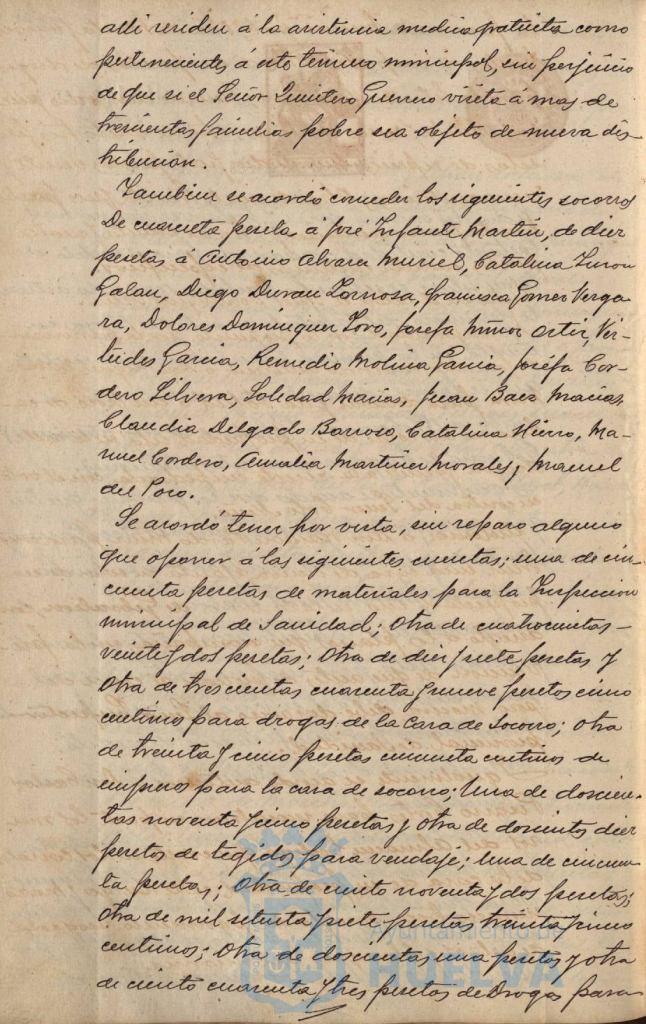 alli residen á la asistencia medica gratuita como
pertenecientes á este término municipal, sin perjuicio
de que si el Señor Quintero Guerrero visita á mas de
trescientas familias pobres sea objeto de nueva dis-
tribucion.
Tambien se acordó conceder los siguientes socorros
De cuarenta pesetas á José Infante Martin, de diez
pesetas á Antonio Alvarez Muriel, Catalina
Galan, Diego Duran Zornosa, francisca Gomez Verga-
ra, Dolores Dominguez Toro, Josefa Muñoz Ortiz, Vir-
tudes Garcia, Remedio Molina Garcia, Joséfa Cor-
dero Silvera, Soledad Macias, Juan Baez Macias,
Claudia Delgado Barroso, Catalina Hierro, Ma-
nuel Cordero, Amalia Martinez Morales y Manuel
del Pozo.
Se acordó tener por vista, sin reparo alguno
que oponer á las siguientes cuentas; una de cin-
cuenta pesetas de materiales para la Inspeccion
municipal de Sanidad; Otra de cuatrocientas-
veinte y dos pesetas; Otra de diez y siete pesetas y
Otra de trescientas cuarenta y nueve pesetas cinco
centimos para drogas de la Casa de Socorro; Otra
de treinta y cinco pesetas cincuenta centimos de
impresos para la casa de socorro; Una de doscien-
tas noventa y cinco pesetas y otra de doscientas diez
pesetas de tegidos para vendaje; Una de cincuen-
ta pesetas; Otra de ciento noventa y dos pesetas;
Otra de mil setenta y siete pesetas treinta y cinco
centimos; Otra de doscientas una pesetas y otra
de ciento cuarenta y tres pesetas de Drogas para
Ayuntamiento de
HUELVA